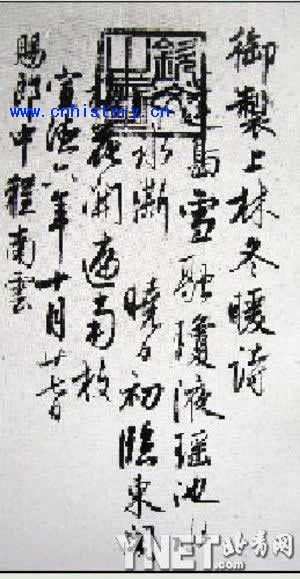 御製上林冬暖詩
島雪融瓊液瑤池水
冰澌 曉日初臨東閣
花開遍南枝
宣德六年十月廿七日
賜 中程南雲
www.cnhistery.cn
YNET 北青网